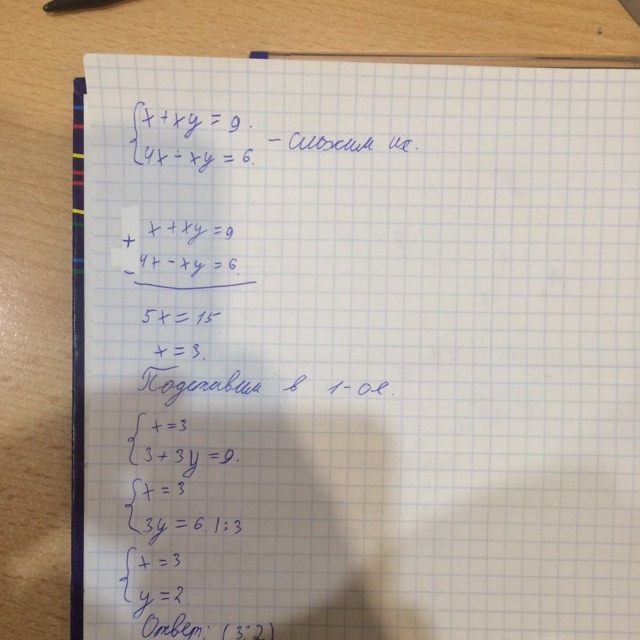 {x+xy=9.
{4x-xy=6. - сложим их.
+ x+xy=9
4x-xy=6.
5x=15
x=3.
Подставим в 1-ое.
{x=3
{3+3y=9.
{x=3
{3y=6.|:3
{x=3
{y=2
Ответ: (3;2)